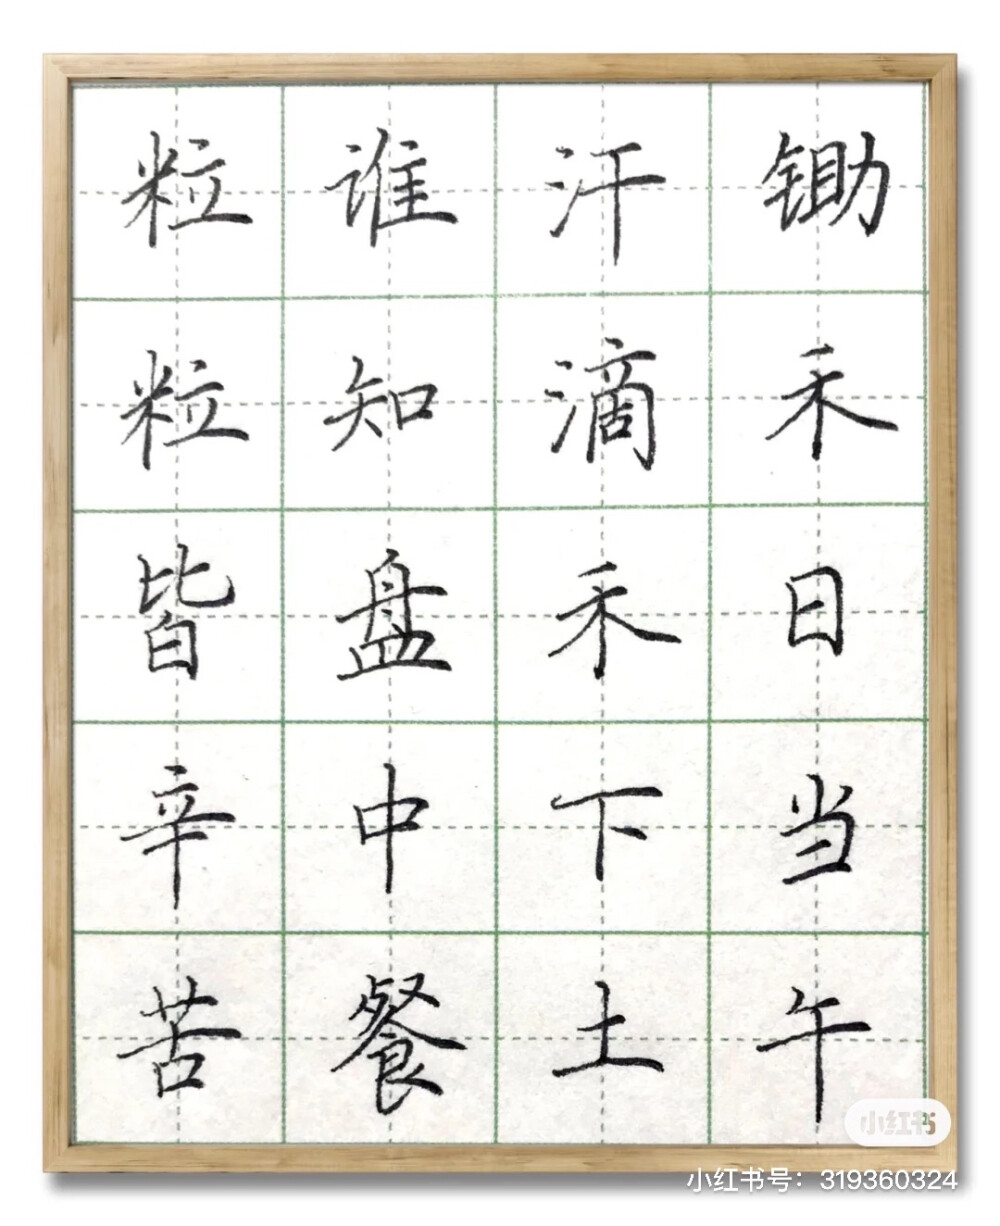 锄禾日当午
汗滴禾下土
谁知盘中餐
粒粒皆辛苦
小红书
小红书号：319360324